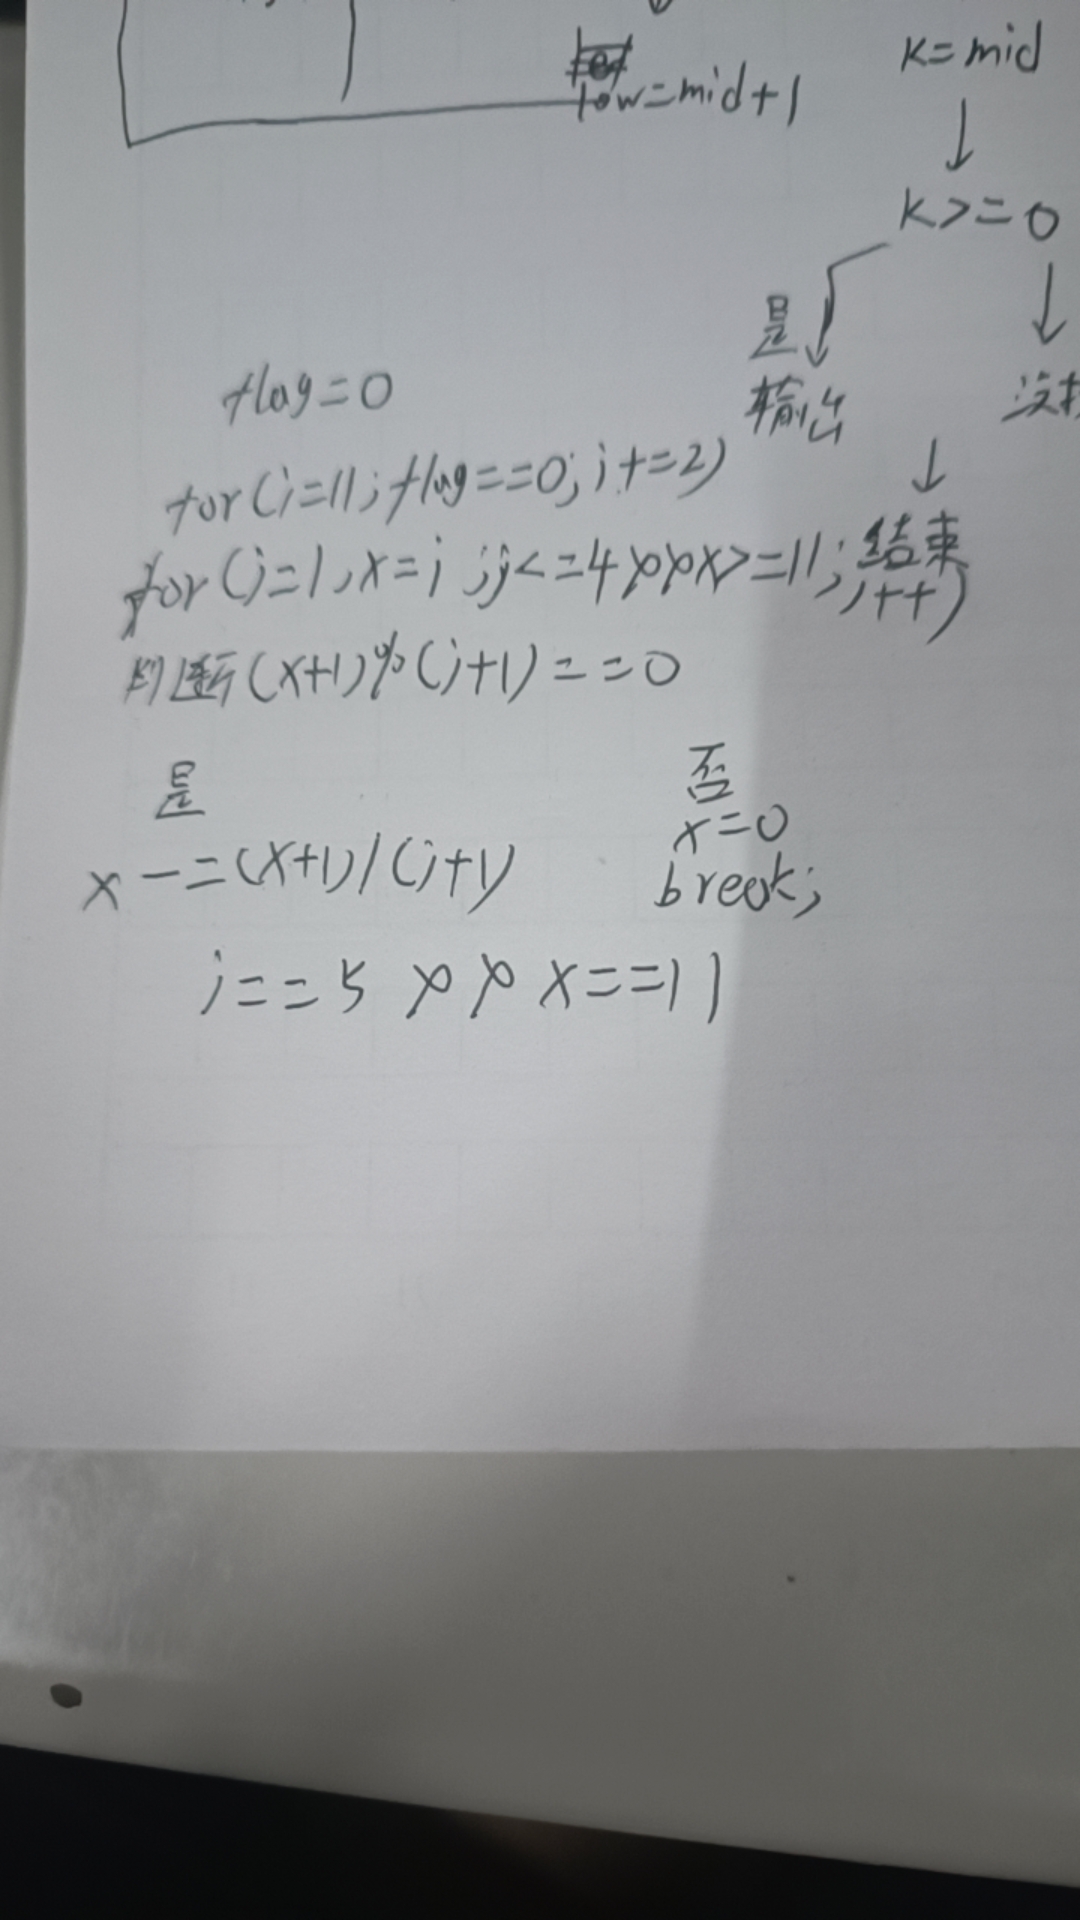 low=mid+1
k=mid
k>=0
是
输出
结束
flag=0
for(i=11;flag==0;i+=2)
for(j=1,x=i;j<=4&&x>=11;j++)
判断(x+1)%(j+1)==0
是
否
x-=(x+1)/(j+1)
x=0
break;
j==5 && x==11